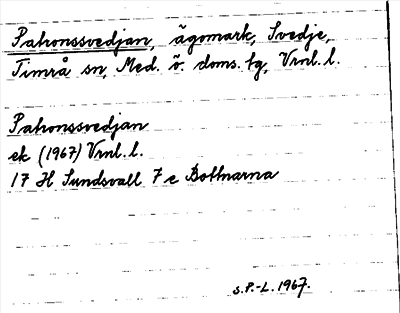 Patronssvedjan, ägomark, Svedje,
Timrå sn, Med. ö. doms. tg, Vrnl. l.
Patronssvedjan
ek (1967) Vrnl. l.
17 H Sundsvall 7 e Bottnarna
S.P.-L. 1967.